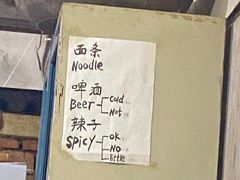 面条
Noodle
啤酒
Beer
Cold
Not
辣子
SPICY
OK
NO
little